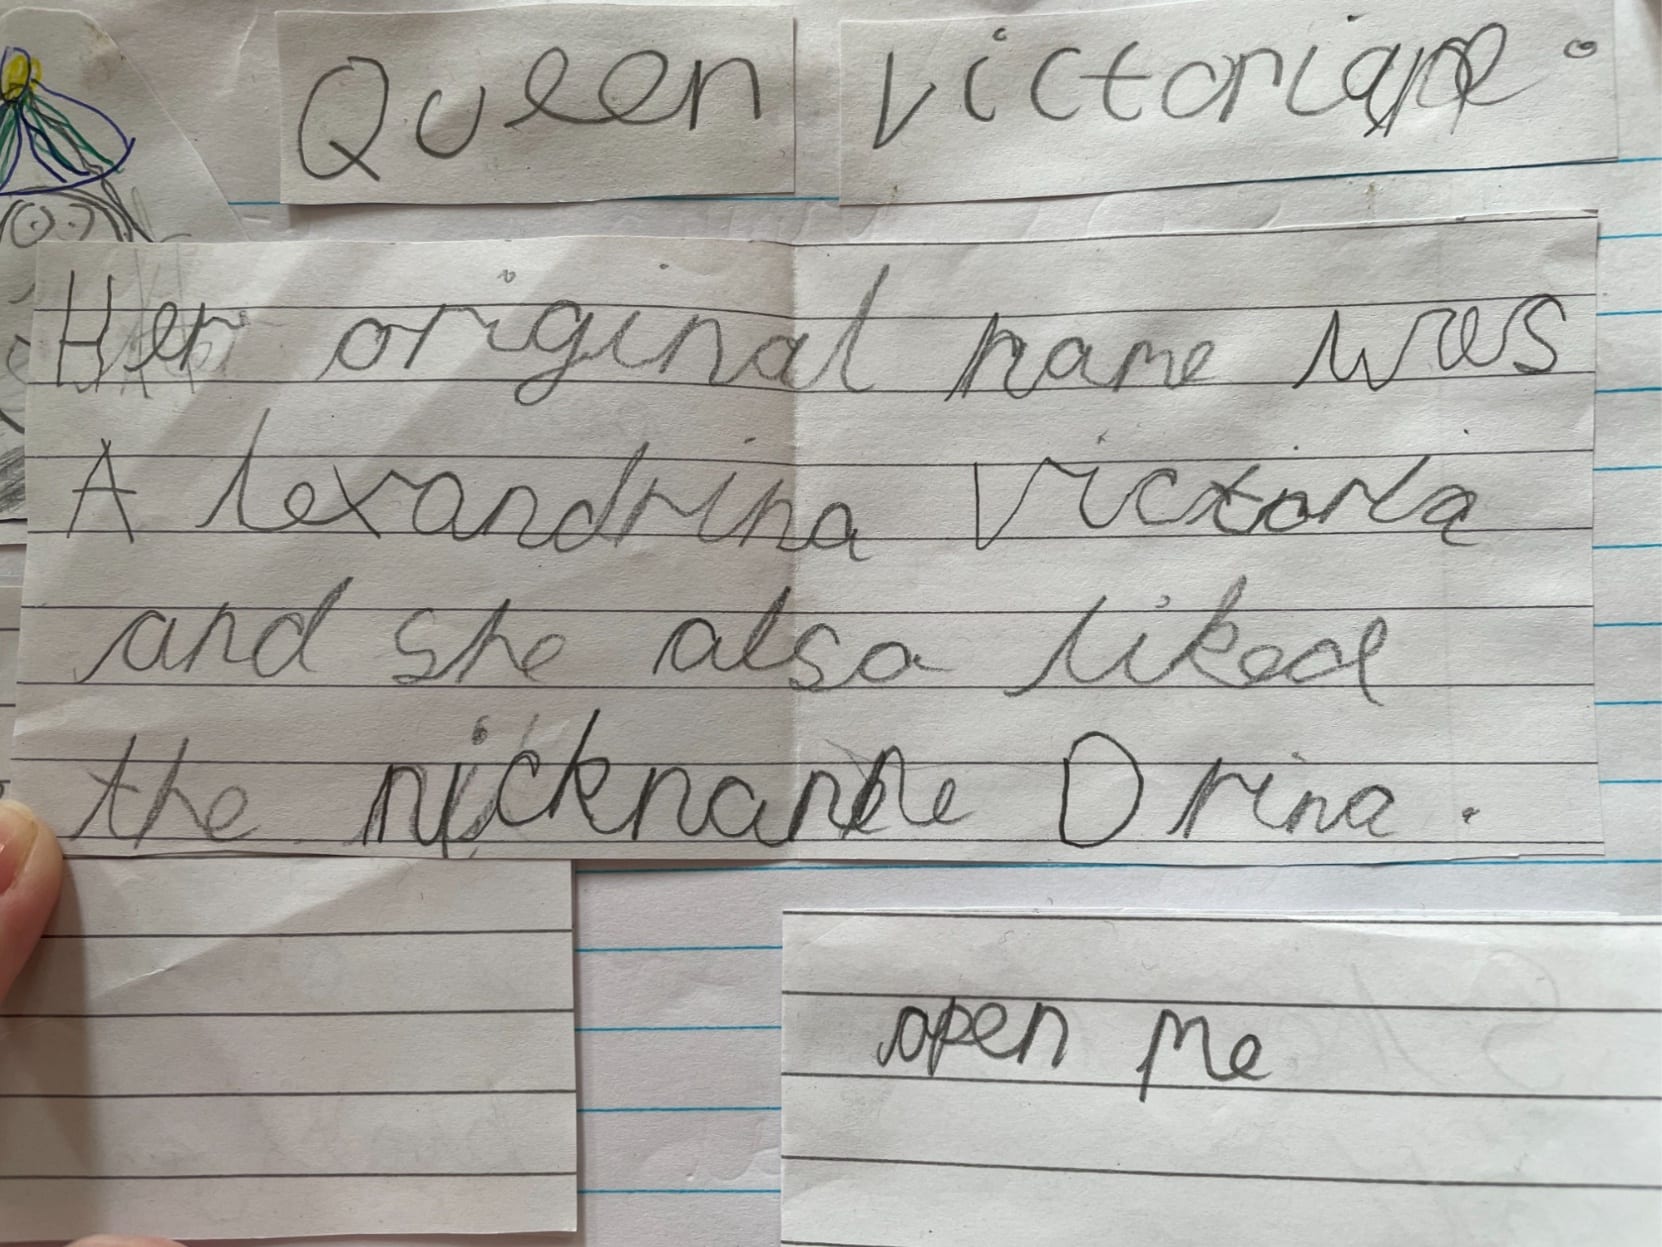 Queen victoriane.
Her original name was
Alexandrina Victoria
and she also liked
the nickname Drina.
open me